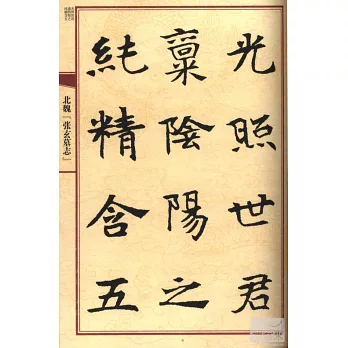 光照世君
稟陰陽之
純精含五
北魏「张玄墓志」